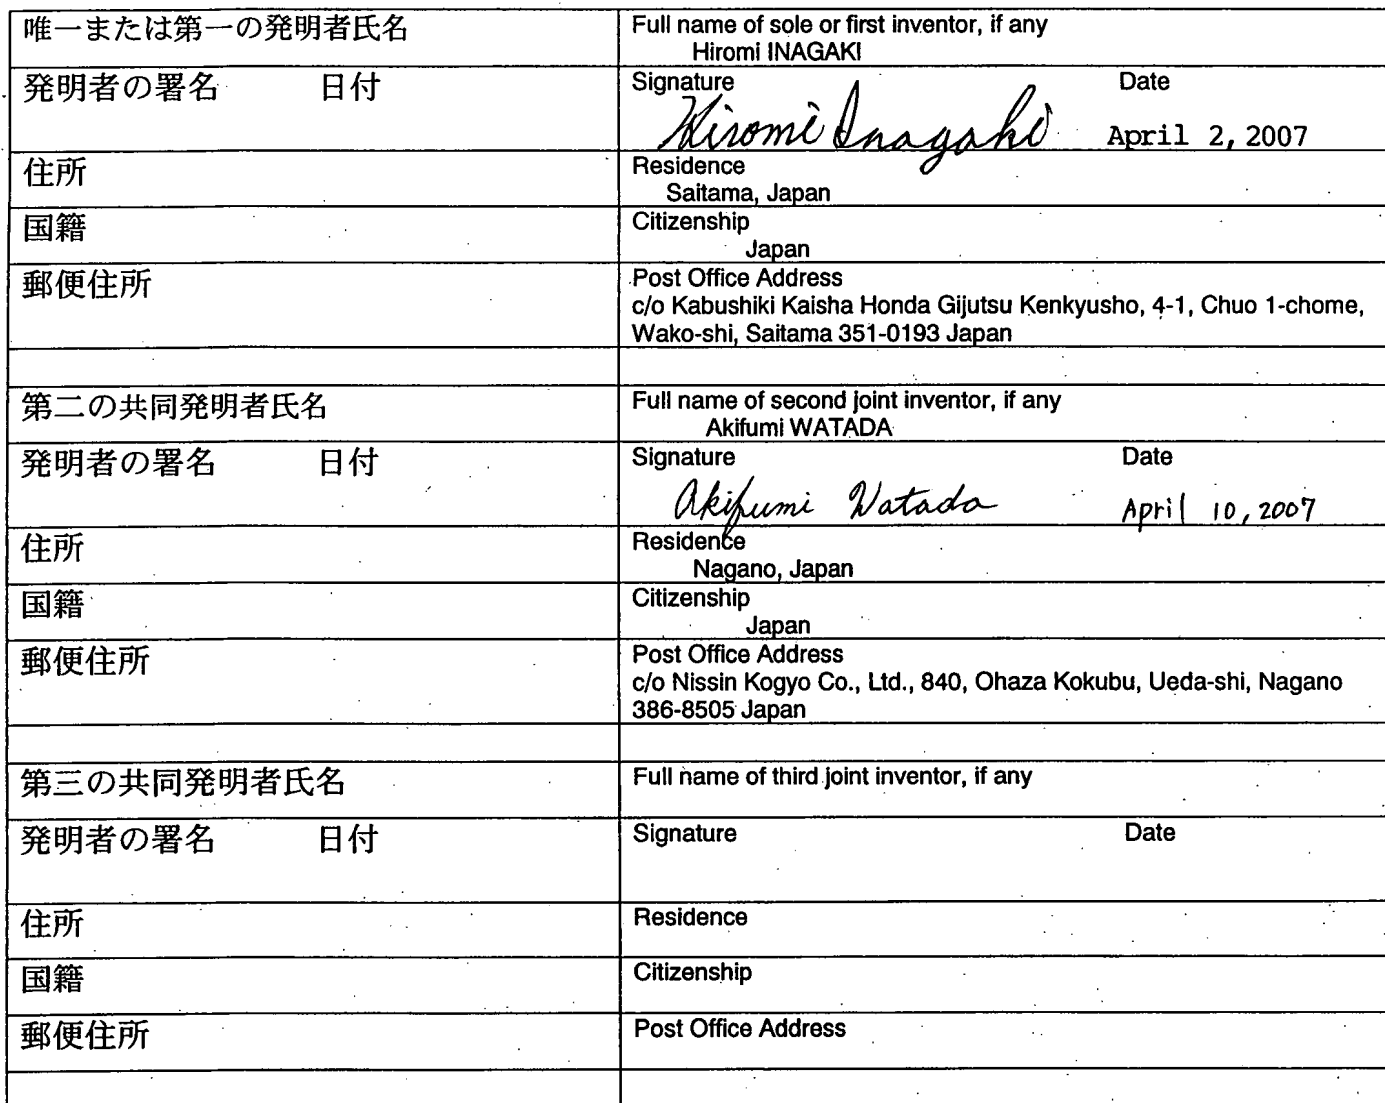 唯一または第一の発明者氏名
Full name of sole or first inventor, if any
Hiromi INAGAKI
発明者の署名 日付
Signature Date
Hiromi Inagaki April 2, 2007
住所
Residence
Saitama, Japan
国籍
Citizenship
Japan
郵便住所
Post Office Address
c/o Kabushiki Kaisha Honda Gijutsu Kenkyusho, 4-1, Chuo 1-chome,
Wako-shi, Saitama 351-0193 Japan
第二の共同発明者氏名
Full name of second joint inventor, if any
Akifumi WATADA
発明者の署名 日付
Signature Date
Akifumi Watada April 10, 2007
住所
Residence
Nagano, Japan
国籍
Citizenship
Japan
郵便住所
Post Office Address
c/o Nissin Kogyo Co., Ltd., 840, Ohaza Kokubu, Ueda-shi, Nagano
386-8505 Japan
第三の共同発明者氏名
Full name of third joint inventor, if any
発明者の署名 日付
Signature Date
住所
Residence
国籍
Citizenship
郵便住所
Post Office Address